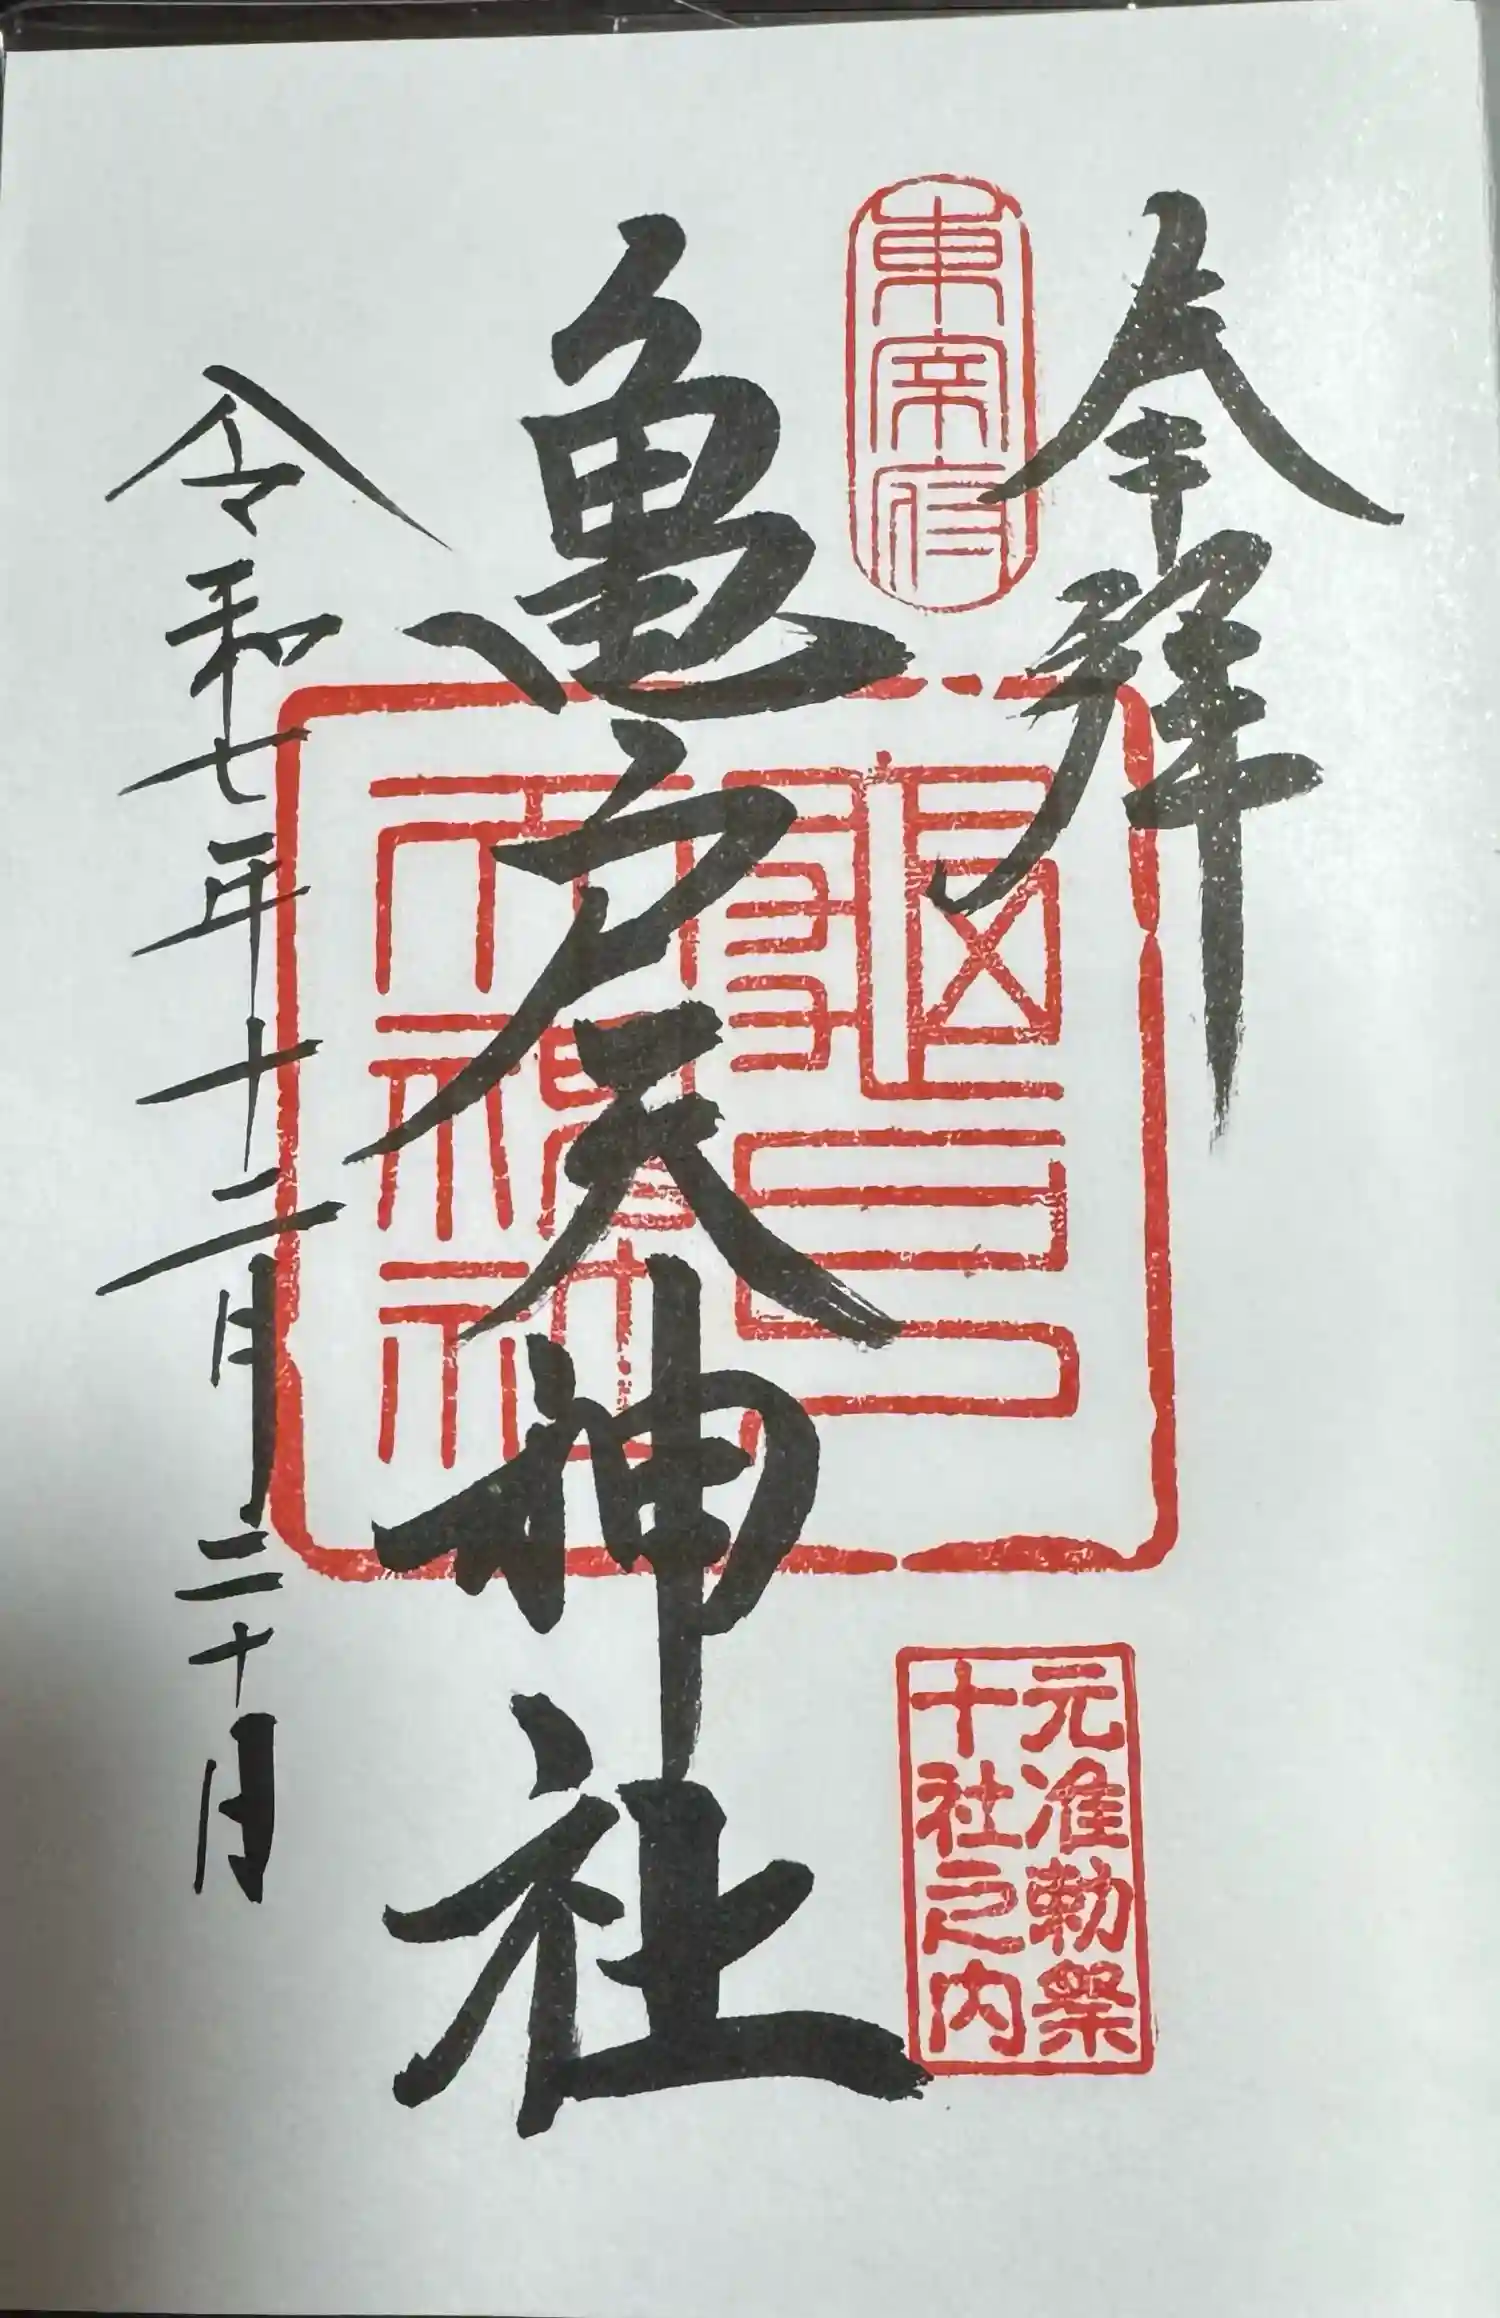 奉拝
東宰府
亀戸天神社
龜戸
天神社
元准勅祭
十社之内
令和七年十二月三十日